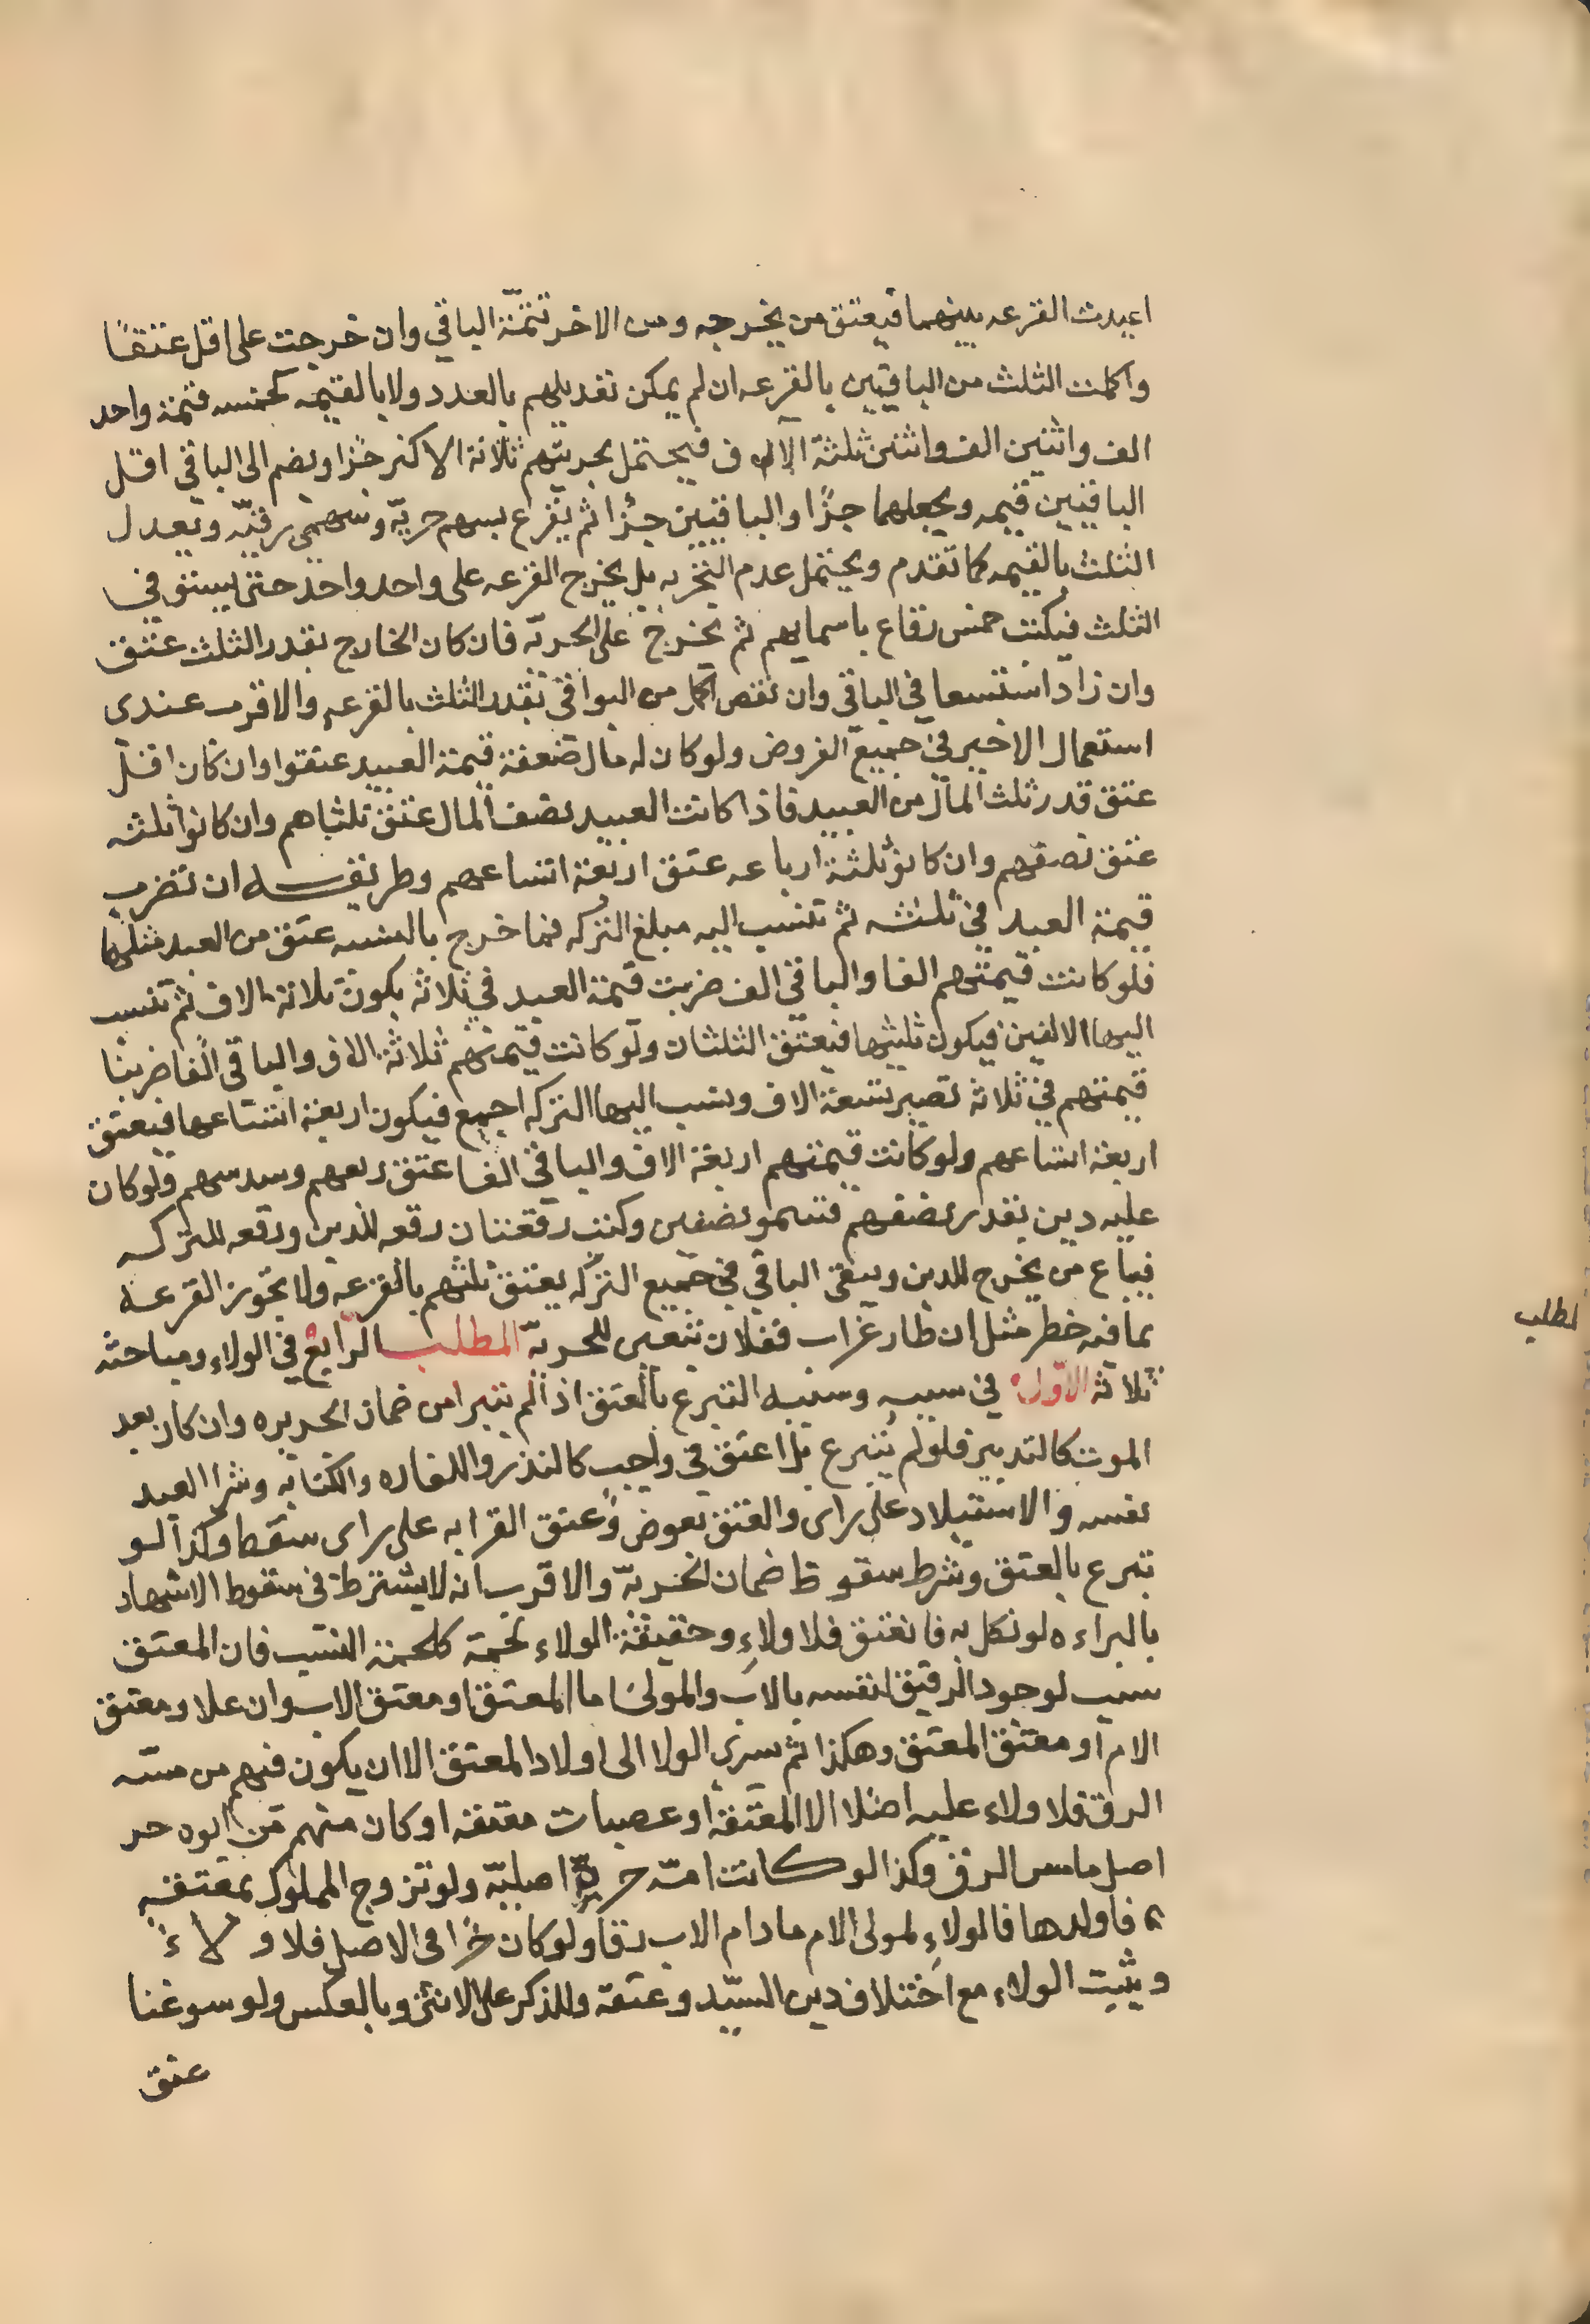 اعيدت القرعه بينهما فيعتق من يخرجه ومن الاخر تتمّة الباقي وان خرجت على اقل عتقًا
واكلمت الثلث من الباقيين بالقرعه ان لم يمكن تعديلهم بالعدد ولا بالقيمه كخمسه قيمة واحد
الف واثنين الف واثنين ثلثة آلاف فيحتمل بحريتهم ثلاثة الاكثر جزا ويضم الى الباقي اقل
الباقيين قيمه ويجعلهما جزًا والباقيين جزًا ثم يقرع بسهم حريّه وسهمي رقيّه ويعدل
الثلث بالقيمه كما تقدم ويحتمل عدم التجزيه بل يخرج القرعه على واحد واحد حتى يستوفي
الثلث فيكتب خمس رقاع باسمايهم ثم يخرج على الحريّه فان كان الخارج بقدر الثلث عتق
وان زاد استسعا في الباقي وان نقص اكمل من البواقي بقدر الثلث بالقرعه والاقرب عندي
استعمال الاخير في جميع الفروض ولو كان له مال ضعفة قيمة العبيد عتقوا وان كان اقل
عتق قدر ثلث المال من العبيد فاذا كانت العبيد نصف المال عتق ثلثاهم وان كانوا ثلثه
عتق نصفهم وان كانوا ثلثة ارباعه عتق اربعة اتساعهم وطريقه ان تضرب
قيمة العبد في ثلثه ثم تنسب اليه مبلغ التركه فما خرج بالنسبه عتق من العبد مثلها
فلو كانت قيمتهم الفا والباقي الف ضربت قيمة العبد في ثلاثه يكون ثلاثة الاف ثم تنسب
اليها الالفين فيكون ثلثيها فيعتق الثلثان ولو كانت قيمتهم ثلاثة الاف والباقي الفا ضربنا
قيمتهم في ثلاثه تصير تسعة الاف وينسب اليها التركه اجمع فيكون اربعة اتساعها فيعتق
اربعة اتساعهم ولو كانت قيمتهم اربعة الاف والباقي الفا عتق ربعهم وسدسهم ولو كان
عليه دين بقدر نصفهم قسموا نصفين وكتب رقعتان رقعه للدين ورقعه للتركه
فيباع من يخرج للدين ويبقى الباقي في جميع التركه يعتق ثلثهم بالقرعه ولا يجوز القرعه
بما فيه خطر مثل ان طار غراب ففلان يتعين للحريّه المطلب الرابع في الولاء ومباحثه
ثلاثه الاول في سببه وسببه التبرع بالعتق اذا لم يتبرا من ضمان الجريره وان كان بعد
الموت كالتدبير فلو لم يتبرع بل اعتق في واجب كالنذر والكفاره والكتابه وشرا العبد
نفسه والاستيلاد على راى والعتق بعوض وعتق القرابه على راى سقط وكذا لو
تبرع بالعتق وشرط سقوط ضمان الجريره والاقرب انه لا يشترط في سقوط الاشهاد
بالبراءه ولو نكل به فانعتق فلا ولاء وحقيقة الولاء لحمة كلحمة النسب فان المعتق
سبب لوجود الرقيق لنفسه بالاب والمولى اما المعتق او معتق الاب وان علا او معتق
الام او معتق المعتق وهكذا ثم يسرى الولا الى اولاد المعتق الا ان يكون فيهم من مسّه
الرق فلا ولاء عليه اصلا الا المعتقه او عصبات معتقه او كان منهم من ابوه حر
اصل ما مس الرق وكذا لو كانت امّه حرّة اصليّه ولو تزوج المملوك بمعتقه
فاولدها فالولاء لمولى الام ما دام الاب رقا ولو كان حرًا في الاصل فلا ولاء
ويثبت الولاء مع اختلاف دين السيّد وعتقه وللذكر على الانثى وبالعكس ولو سوغنا
عتق
لطلب